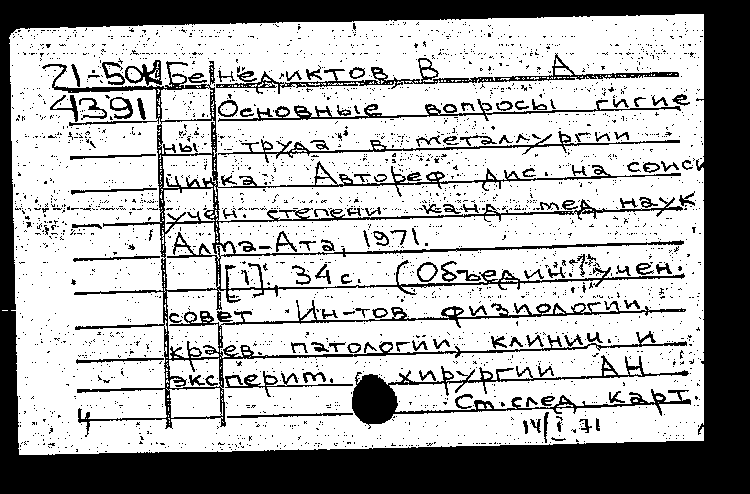 71-50К Бенедиктов, В А
4391 Основные вопросы гигие-
ны труда в металлургии
цинка. Автореф. дис. на соиск
учен. степени канд. мед наук
Алма-Ата, 1971.
[1], 34 с. (Объедин. учен.
совет Ин-тов физиологии,
краев. патологии, клинич. и
эксперит. хирургии АН
См. след. карт.
4
14/I.71